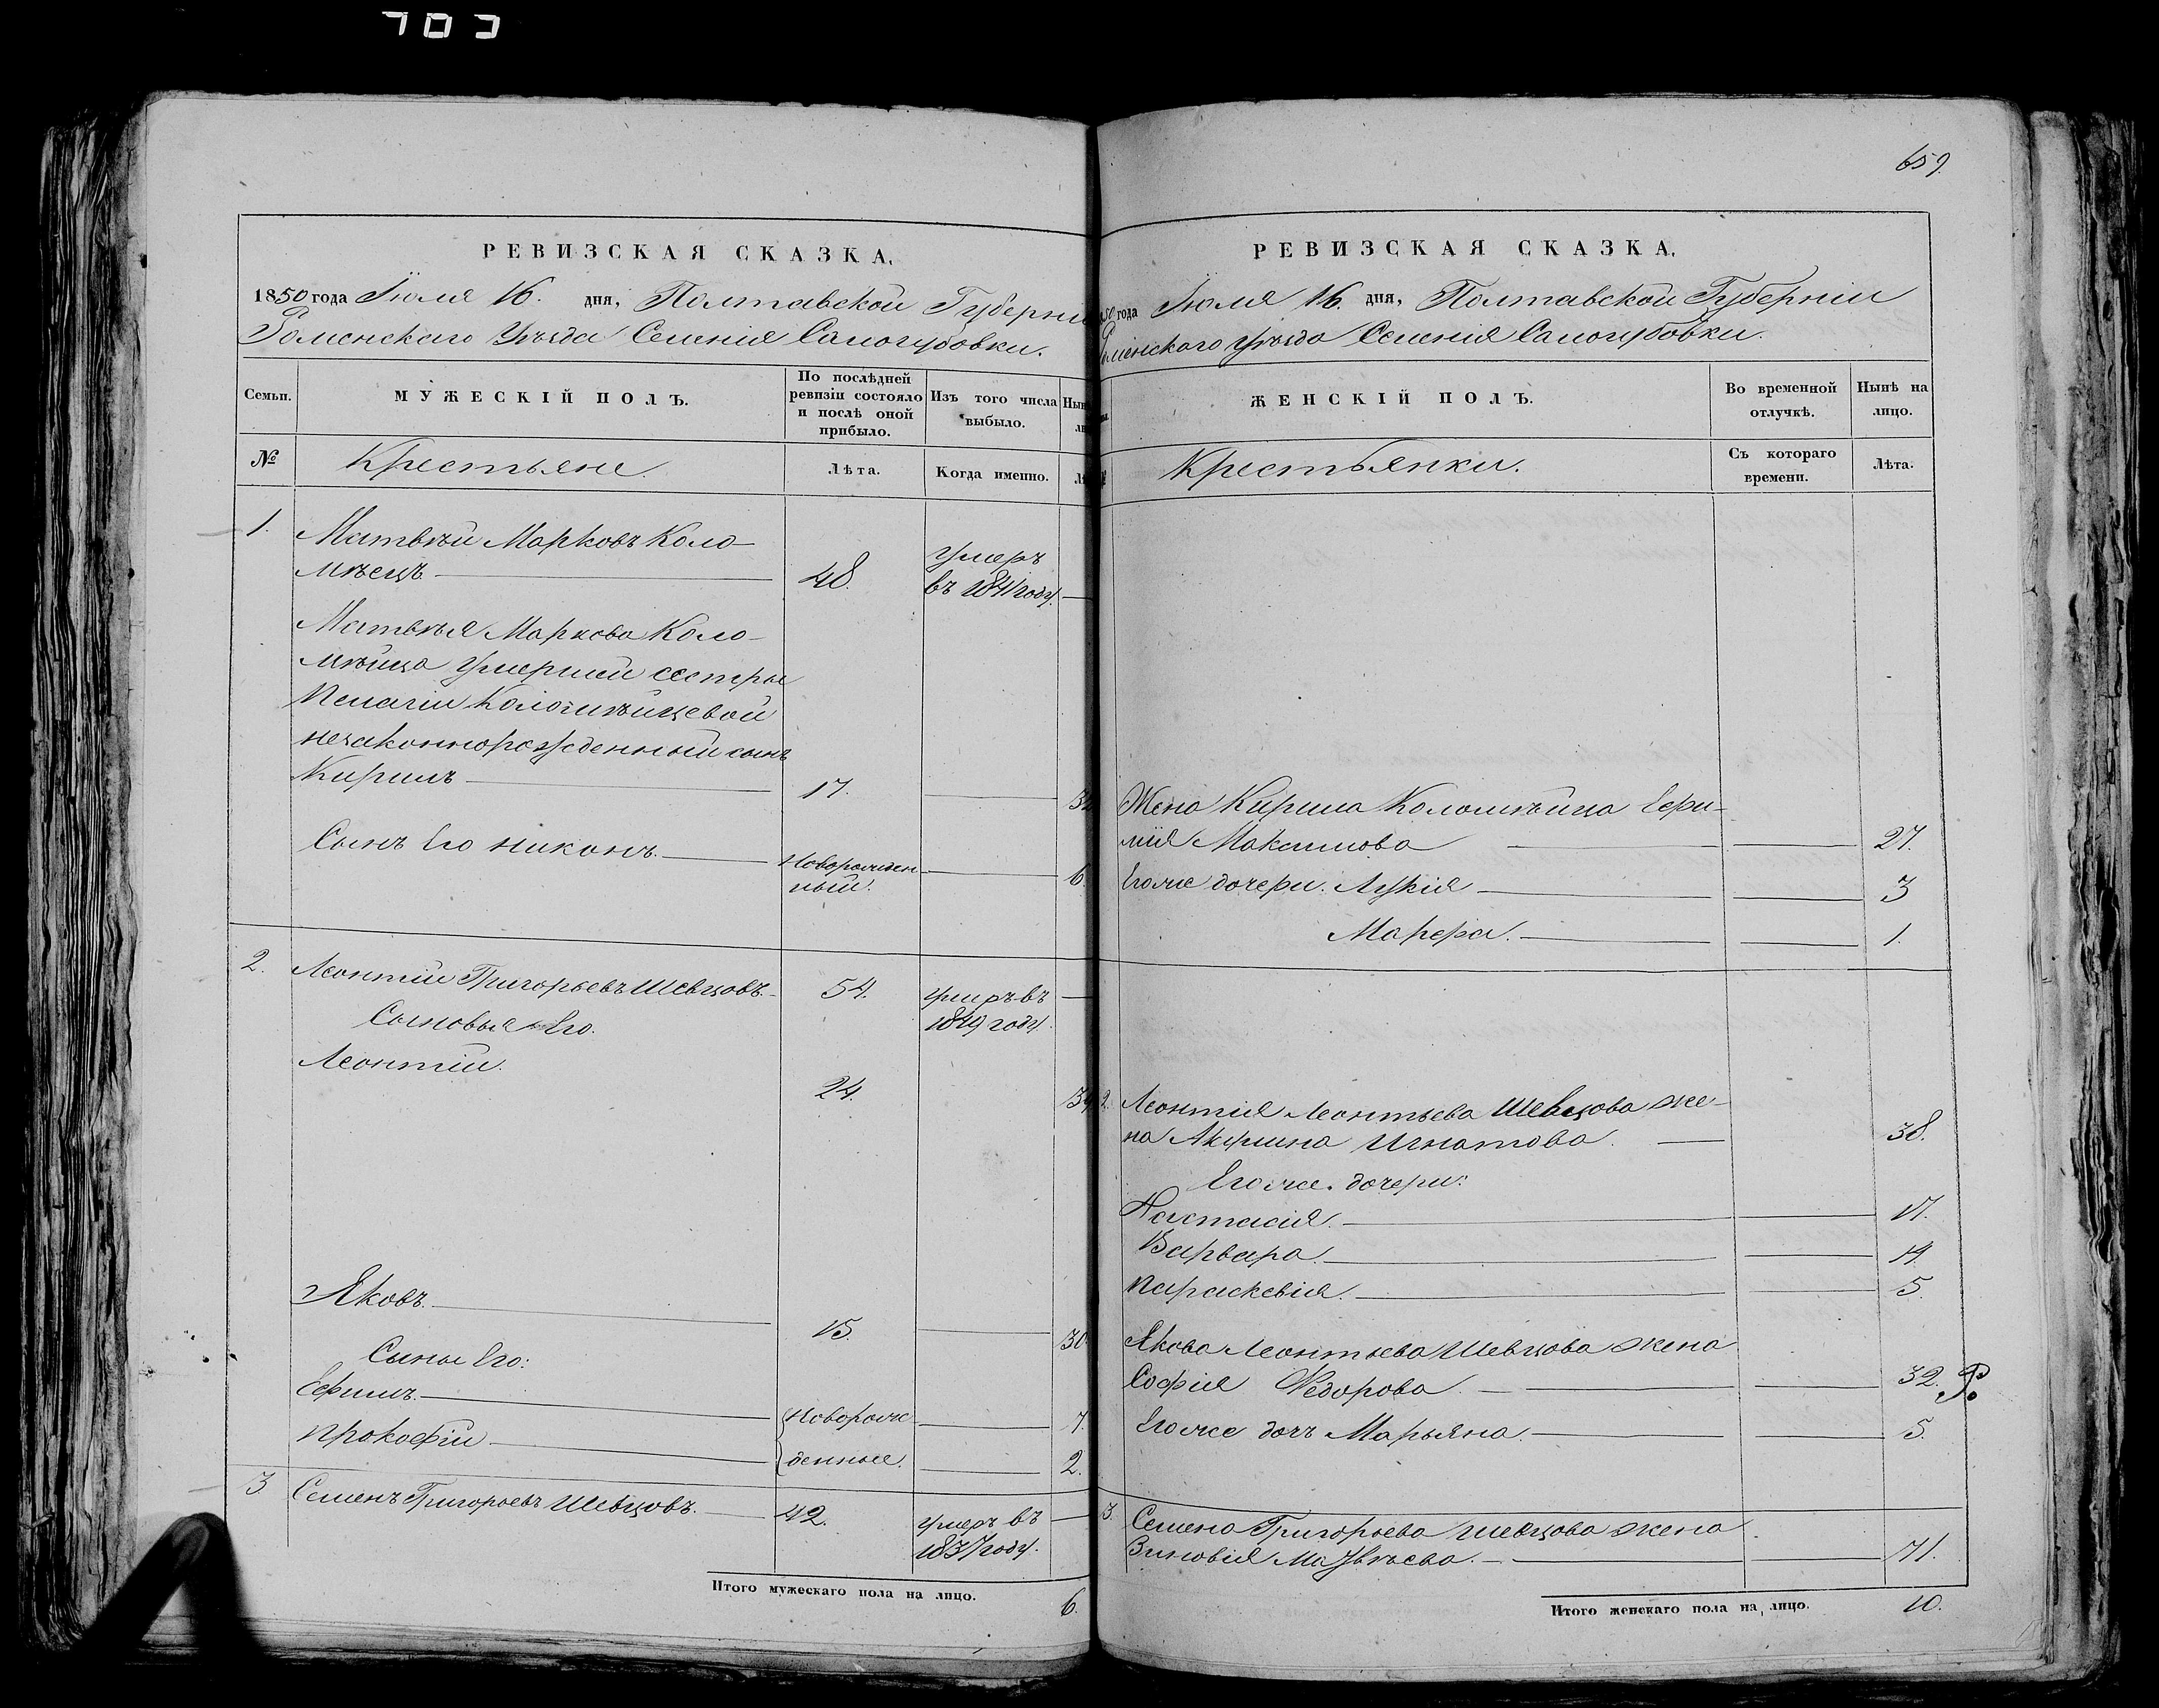 703
РЕВИЗСКАЯ СКАЗКА.
1850 года Іюля 16. дня, Полтавской Губерніи
Роменскаго Уѣзда Селенія Сакогубовки.
Семьи.
МУЖЕСКІЙ ПОЛЪ.
По послѣдней ревизіи состояло и послѣ оной прибыло.
Изъ того числа выбыло.
№
Крестьяне
Лѣта.
Когда именно.
1. Матвѣй Марковъ Коло-
мѣецъ 48. Умеръ въ 1841 году.
Матвѣя Маркова Коло-
мѣйца умершей сестры
Пелагіи Коломѣйцевой
незаконнорожденный сынъ
Кирилъ 17.
Сынъ Его Никонъ. Новорожден-
ный. 6.
2. Леонтій Григорьевъ Шевцовъ. 54. умеръ въ
1849 году.
Сыновья Его.
Леонтій. 24. 39
Яковъ. 15. 30
Сыны Его:
Ефимъ. Новорож- 7.
Прокофій денные. 2.
3 Семенъ Григорьевъ Шевцовъ. 42. умеръ въ
1837 году.
Итого мужескаго пола на лицо. 6.
659.
РЕВИЗСКАЯ СКАЗКА.
года Іюля 16. дня, Полтавской Губерніи
Роменскаго Уѣзда Селенія Сакогубовки.
ЖЕНСКІЙ ПОЛЪ.
Во временной отлучкѣ.
Нынѣ на лицо.
Крестьянки.
Съ котораго времени.
Лѣта.
Жена Кирила Коломѣйца Ефи-
мія Максимова 27.
Его же дочери. Лукія 3
Марфа. 1.
2. Леонтія Леонтьева Шевцова же-
на Акулина Игнатова. 38.
Его же дочери:
Настасія. 17.
Варвара. 14.
Параскевія. 5.
Якова Леонтьева Шевцова жена
Софія Федорова. 32.
Его же дочь Марьяна. 5.
3. Семена Григорьева Шевцова жена
Зиновія Матвѣева. 71.
Итого женскаго пола на лицо. 10.